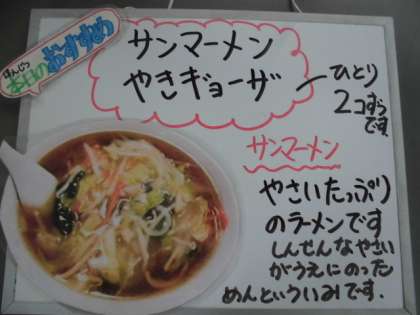 ほんじつ
本日のおすすめ
サンマーメン
やきギョーザ
ひとり
2コずつ
です
サンマーメン
やさいたっぷり
のラーメンです
しんせんなやさい
がうえにのった
めんといういみです.